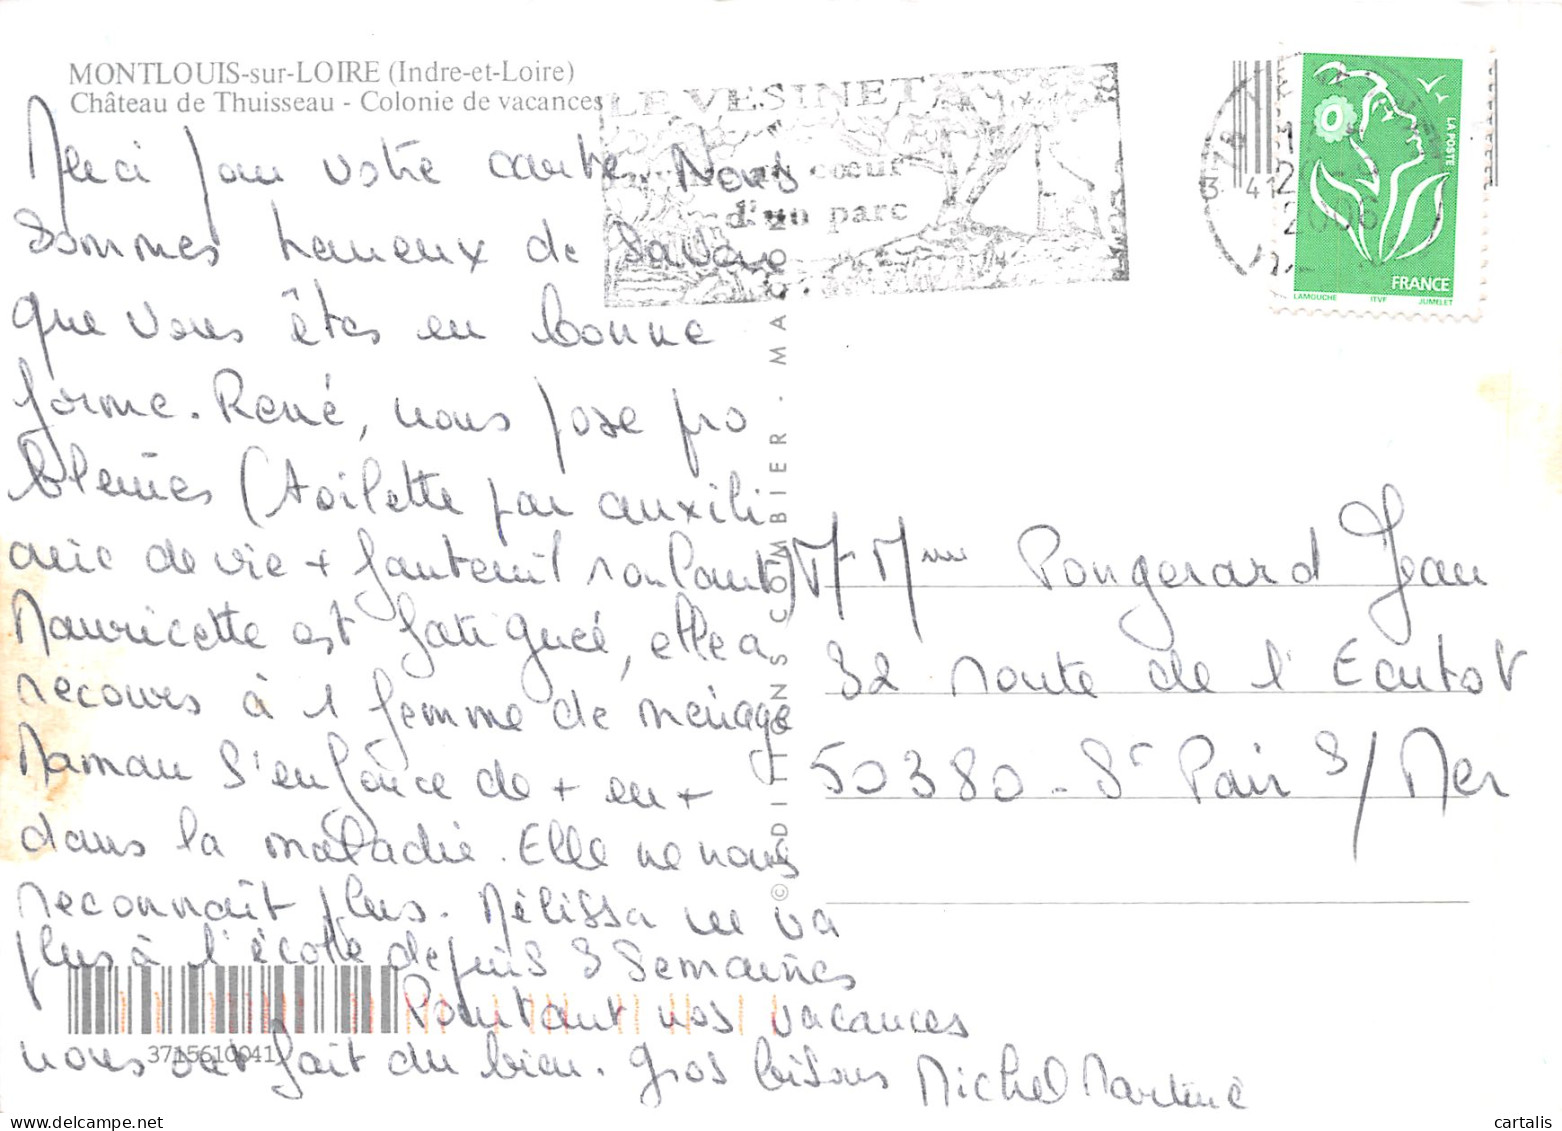 MONTLOUIS-sur-LOIRE (Indre-et-Loire)
Château de Thuisseau - Colonie de vacances
Merci pour votre carte. Nous
sommes heureux de savoir
que vous êtes en bonne
forme. René, nous pose pro
blèmes (toilette par auxili
aire de vie + fauteuil roulant)
Mauricette est fatiguée, elle a
recours à 1 femme de ménage
Maman s'enfonce de + en +
dans la maladie. Elle ne nous
reconnaît plus. Mélissa ne va
plus à l'école depuis 3 semaines
Pourtant nos vacances
nous ont fait du bien. Gros bisous Michel Martine
3715610041
LE VESINET
au coeur
d'un parc
3 41
2006
LA POSTE
FRANCE
LAMOUCHE ITVF JUMELET
© EDITIONS COMBIER - MA
M M^me Pongerard Jean
32 route de l'Ecutot
50380 - St Pair s/Mer
cartalis